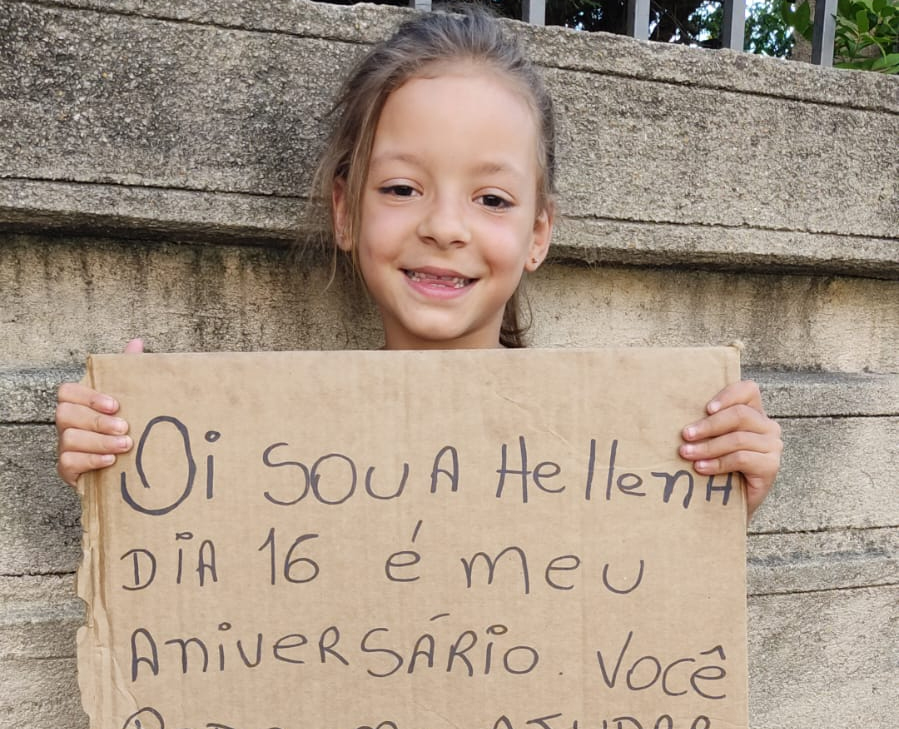 Oi SOU A HelleNA
DIA 16 é meu
ANiVeRSÁRio. Você